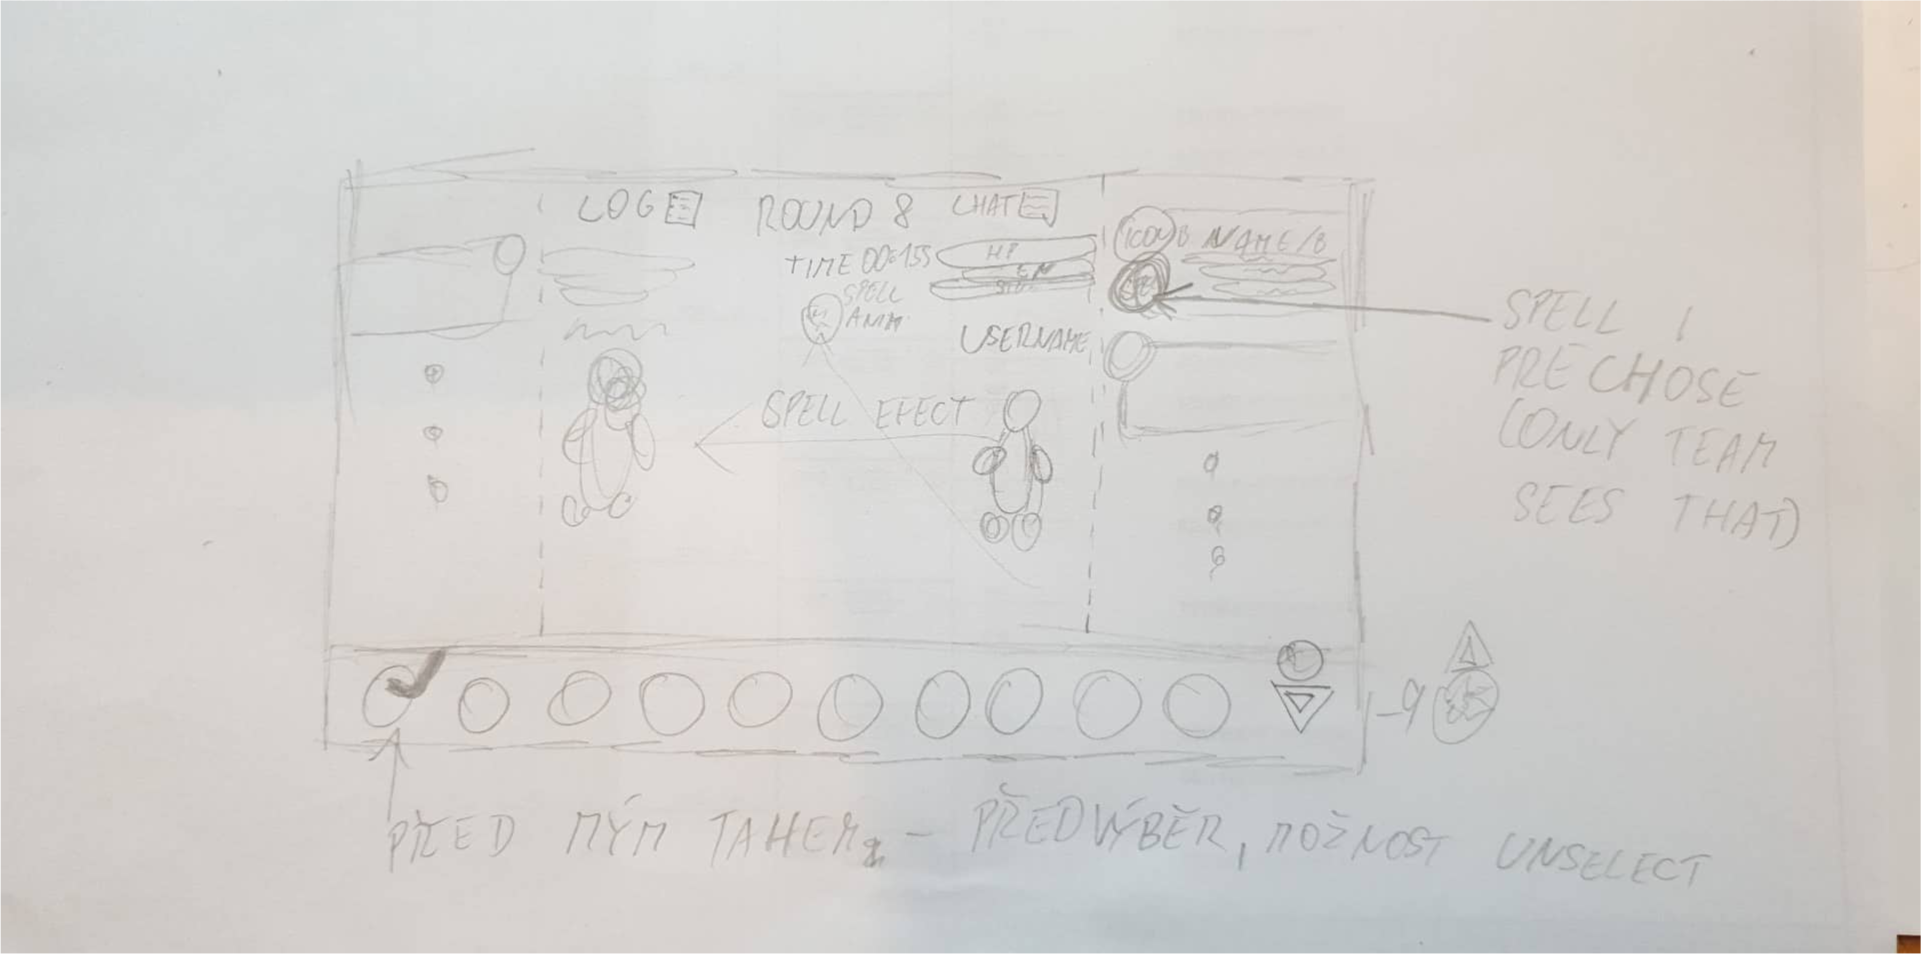 LOG
ROUND 8
CHAT
TIME 00:15S
HP
SPELL
ANIM
USERNAME
NAME/B
SPELL EFECT
SPELL 1
PRE CHOSE
(ONLY TEAM
SEES THAT)
PŘED MÝM TAHEM - PŘEDVÝBĚR, MOŽNOST UNSELECT